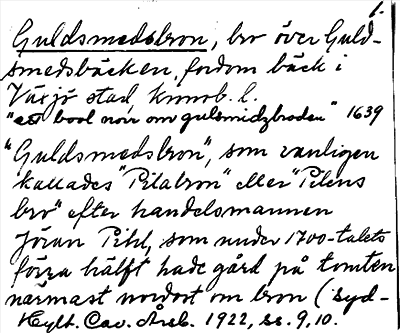 1.
Guldsmedsbron, bro över Guld-
smedsbäcken, fordom bäck i
Växjö stad, Kronob. l.
"ett bool norr om gulsmidzbroden" 1639
"Guldsmedsbron", som vanligen
kallades "Pilabron" eller "Pilens
bro" efter handelsmannen
Jöran Pihl, som under 1700-talets
förra hälft hade gård på tomten
närmast nordost om bron (Syd-
Hylt. Cav. Årsb. 1922, ss. 9, 10.